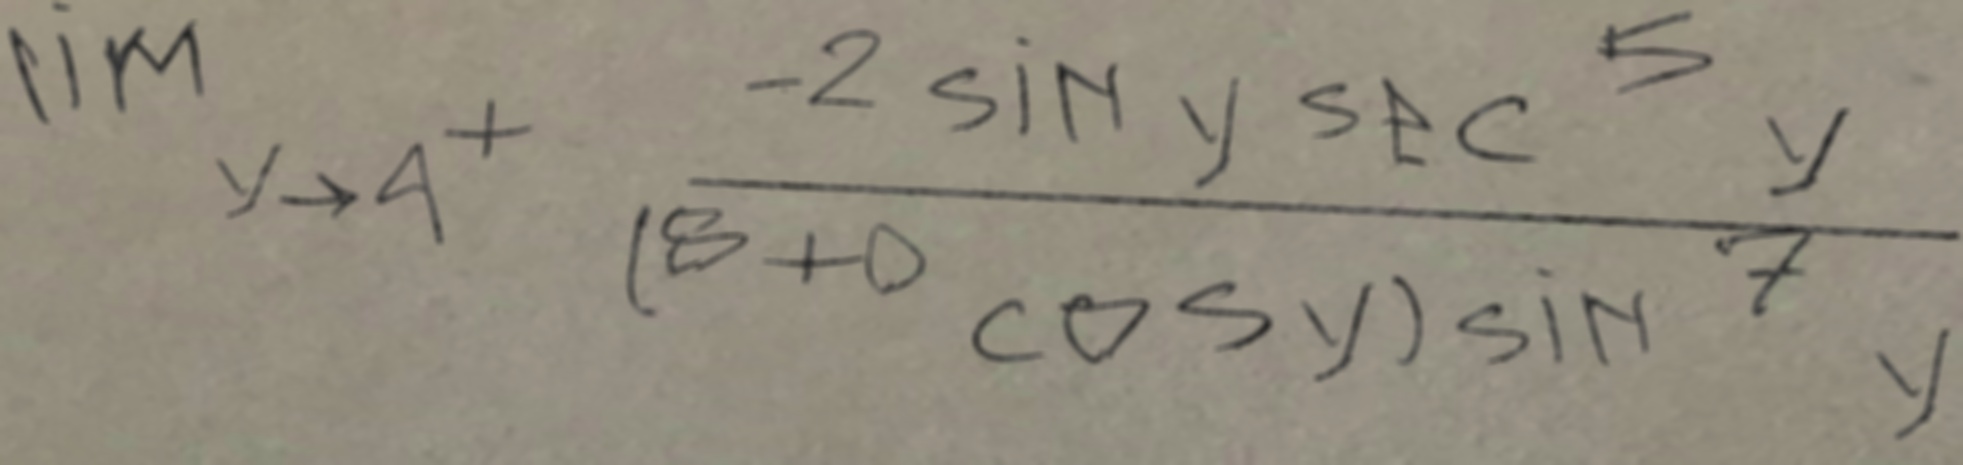 \lim_{y \to 4^+} \frac{-2 \sin y \sec^5 y}{(8+0 \cos y) \sin^7 y}